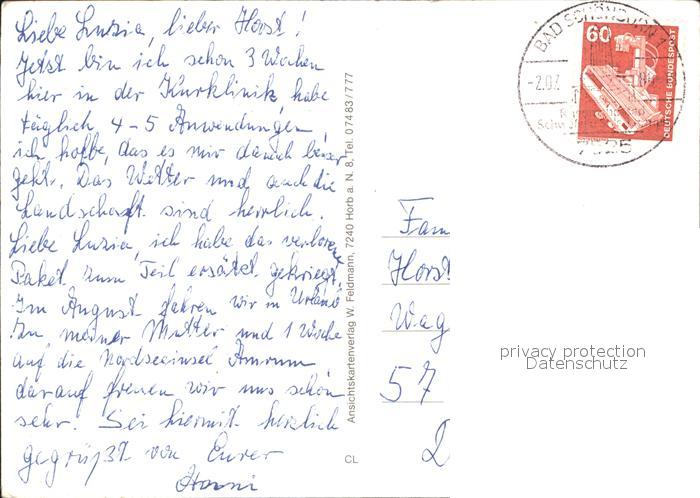 Liebe Luzia, lieber Horst!
Jetzt bin ich schon 3 Wochen
hier in der Kurklinik, habe
täglich 4-5 Anwendungen,
ich hoffe, das es mir danach besser
geht. Das Wetter und auch die
Landschaft sind herrlich.
Liebe Luzia, ich habe das verlorene
Paket zum Teil ersätzt gekriegt.
Im August fahren wir in Urlaub
Zu meiner Mutter und 1 Woche
auf die Nordseeinsel Amrum
darauf freuen wir uns schon
sehr. Sei hiermit herzlich
gegrüßt von Eurer
Hanni
Ansichtskartenverlag W. Feldmann, 7240 Horb a. N. 8, Tel. 07483/777
CL
BAD SCHÖNBORN
60
DEUTSCHE BUNDESPOST
-2.07
7525
Fam
Horst
Wag
57
D
privacy protection
Datenschutz